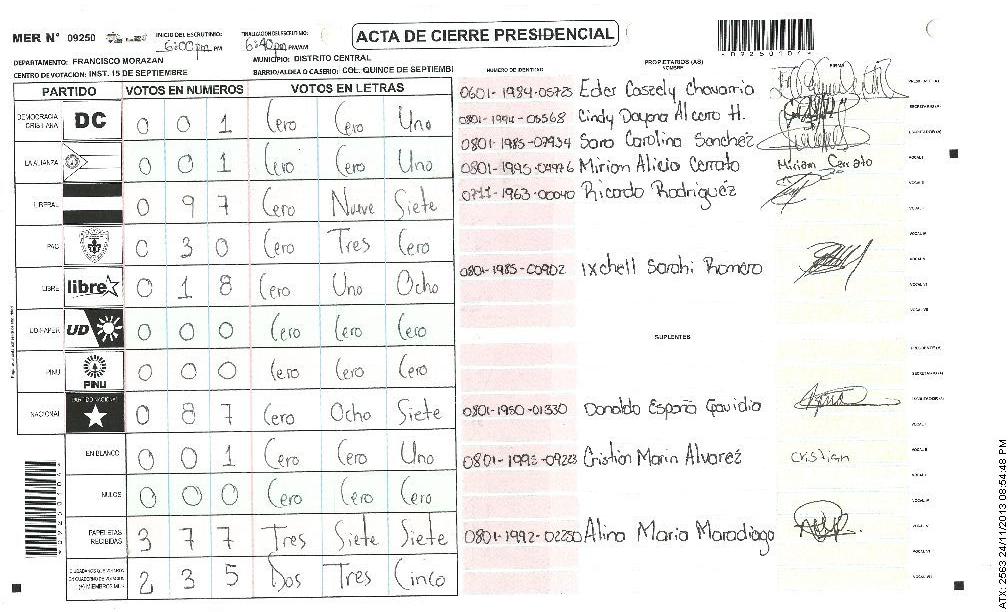 MER N° 09250
INICIO DEL ESCRUTINIO: 6:00 pm PM
FINALIZACION ESCRUTINIO: 6:40 pm PM/AM
ACTA DE CIERRE PRESIDENCIAL
DEPARTAMENTO: FRANCISCO MORAZAN
MUNICIPIO: DISTRITO CENTRAL
CENTRO DE VOTACION: INST. 15 DE SEPTIEMBRE
BARRIO/ALDEA O CASERIO: COL. QUINCE DE SEPTIEMBI
PARTIDO VOTOS EN NUMEROS VOTOS EN LETRAS
DEMOCRACIA CRISTIANA DC 0 0 1 Cero Cero Uno
LA ALIANZA 0 0 1 Cero Cero Uno
LIBERAL 0 9 7 Cero Nueve Siete
PAC 0 3 0 Cero Tres Cero
LIBRE libre 0 1 8 Cero Uno Ocho
UD FAPER UD 0 0 0 Cero Cero Cero
PINU PINU 0 0 0 Cero Cero Cero
NACIONAL PARTIDO NACIONAL 0 8 7 Cero Ocho Siete
EN BLANCO 0 0 1 Cero Cero Uno
NULOS 0 0 0 Cero Cero Cero
PAPELETAS RECIBIDAS 3 7 7 Tres Siete Siete
2 3 5 Dos Tres Cinco
NUMERO DE IDENTIDAD PROPIETARIOS (AS) NOMBRE FIRMA
0601-1984-05723 Eder Caszely Chavarria
0801-1994-05568 Cindy Dayana Alcero H.
0801-1985-07934 Sara Carolina Sanchez
0801-1995-04976 Miriam Alicia Cerrato Miriam Cerrato
0711-1963-00040 Ricardo Rodriguez
0801-1985-00902 Ixchell Sarahi Romero
SUPLENTES
0801-1950-01330 Donaldo España Gavidia
0801-1993-09223 Cristian Marin Alvarez cristian
0801-1992-02250 Alina Maria Maradiaga
092501041
ATX: 2563 24/11/2013 08:54:48 PM